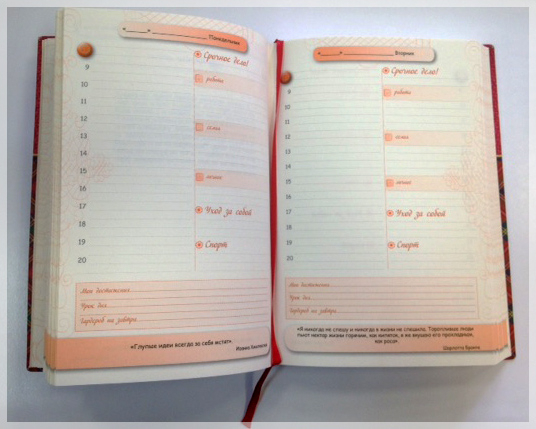 «____»______________ Понедельник
Срочное дело!
9
работа
10
11
12
семья
13
14
15
личное
16
17
Уход за собой
18
19
Спорт
20
Мои достижения
Урок дня
Гардероб на завтра
«Глупые идеи всегда за себя мстят»
«____»______________ Вторник
Срочное дело!
9
работа
10
11
12
семья
13
14
15
личное
16
17
Уход за собой
18
19
Спорт
20
Мои достижения
Урок дня
Гардероб на завтра
«Я никогда не спешу и никогда в жизни не спешила. Торопливые люди
пьют нектар жизни горячим, как кипяток, а я вкушаю его прохладным,
как роса»
Шарлотта Бронте